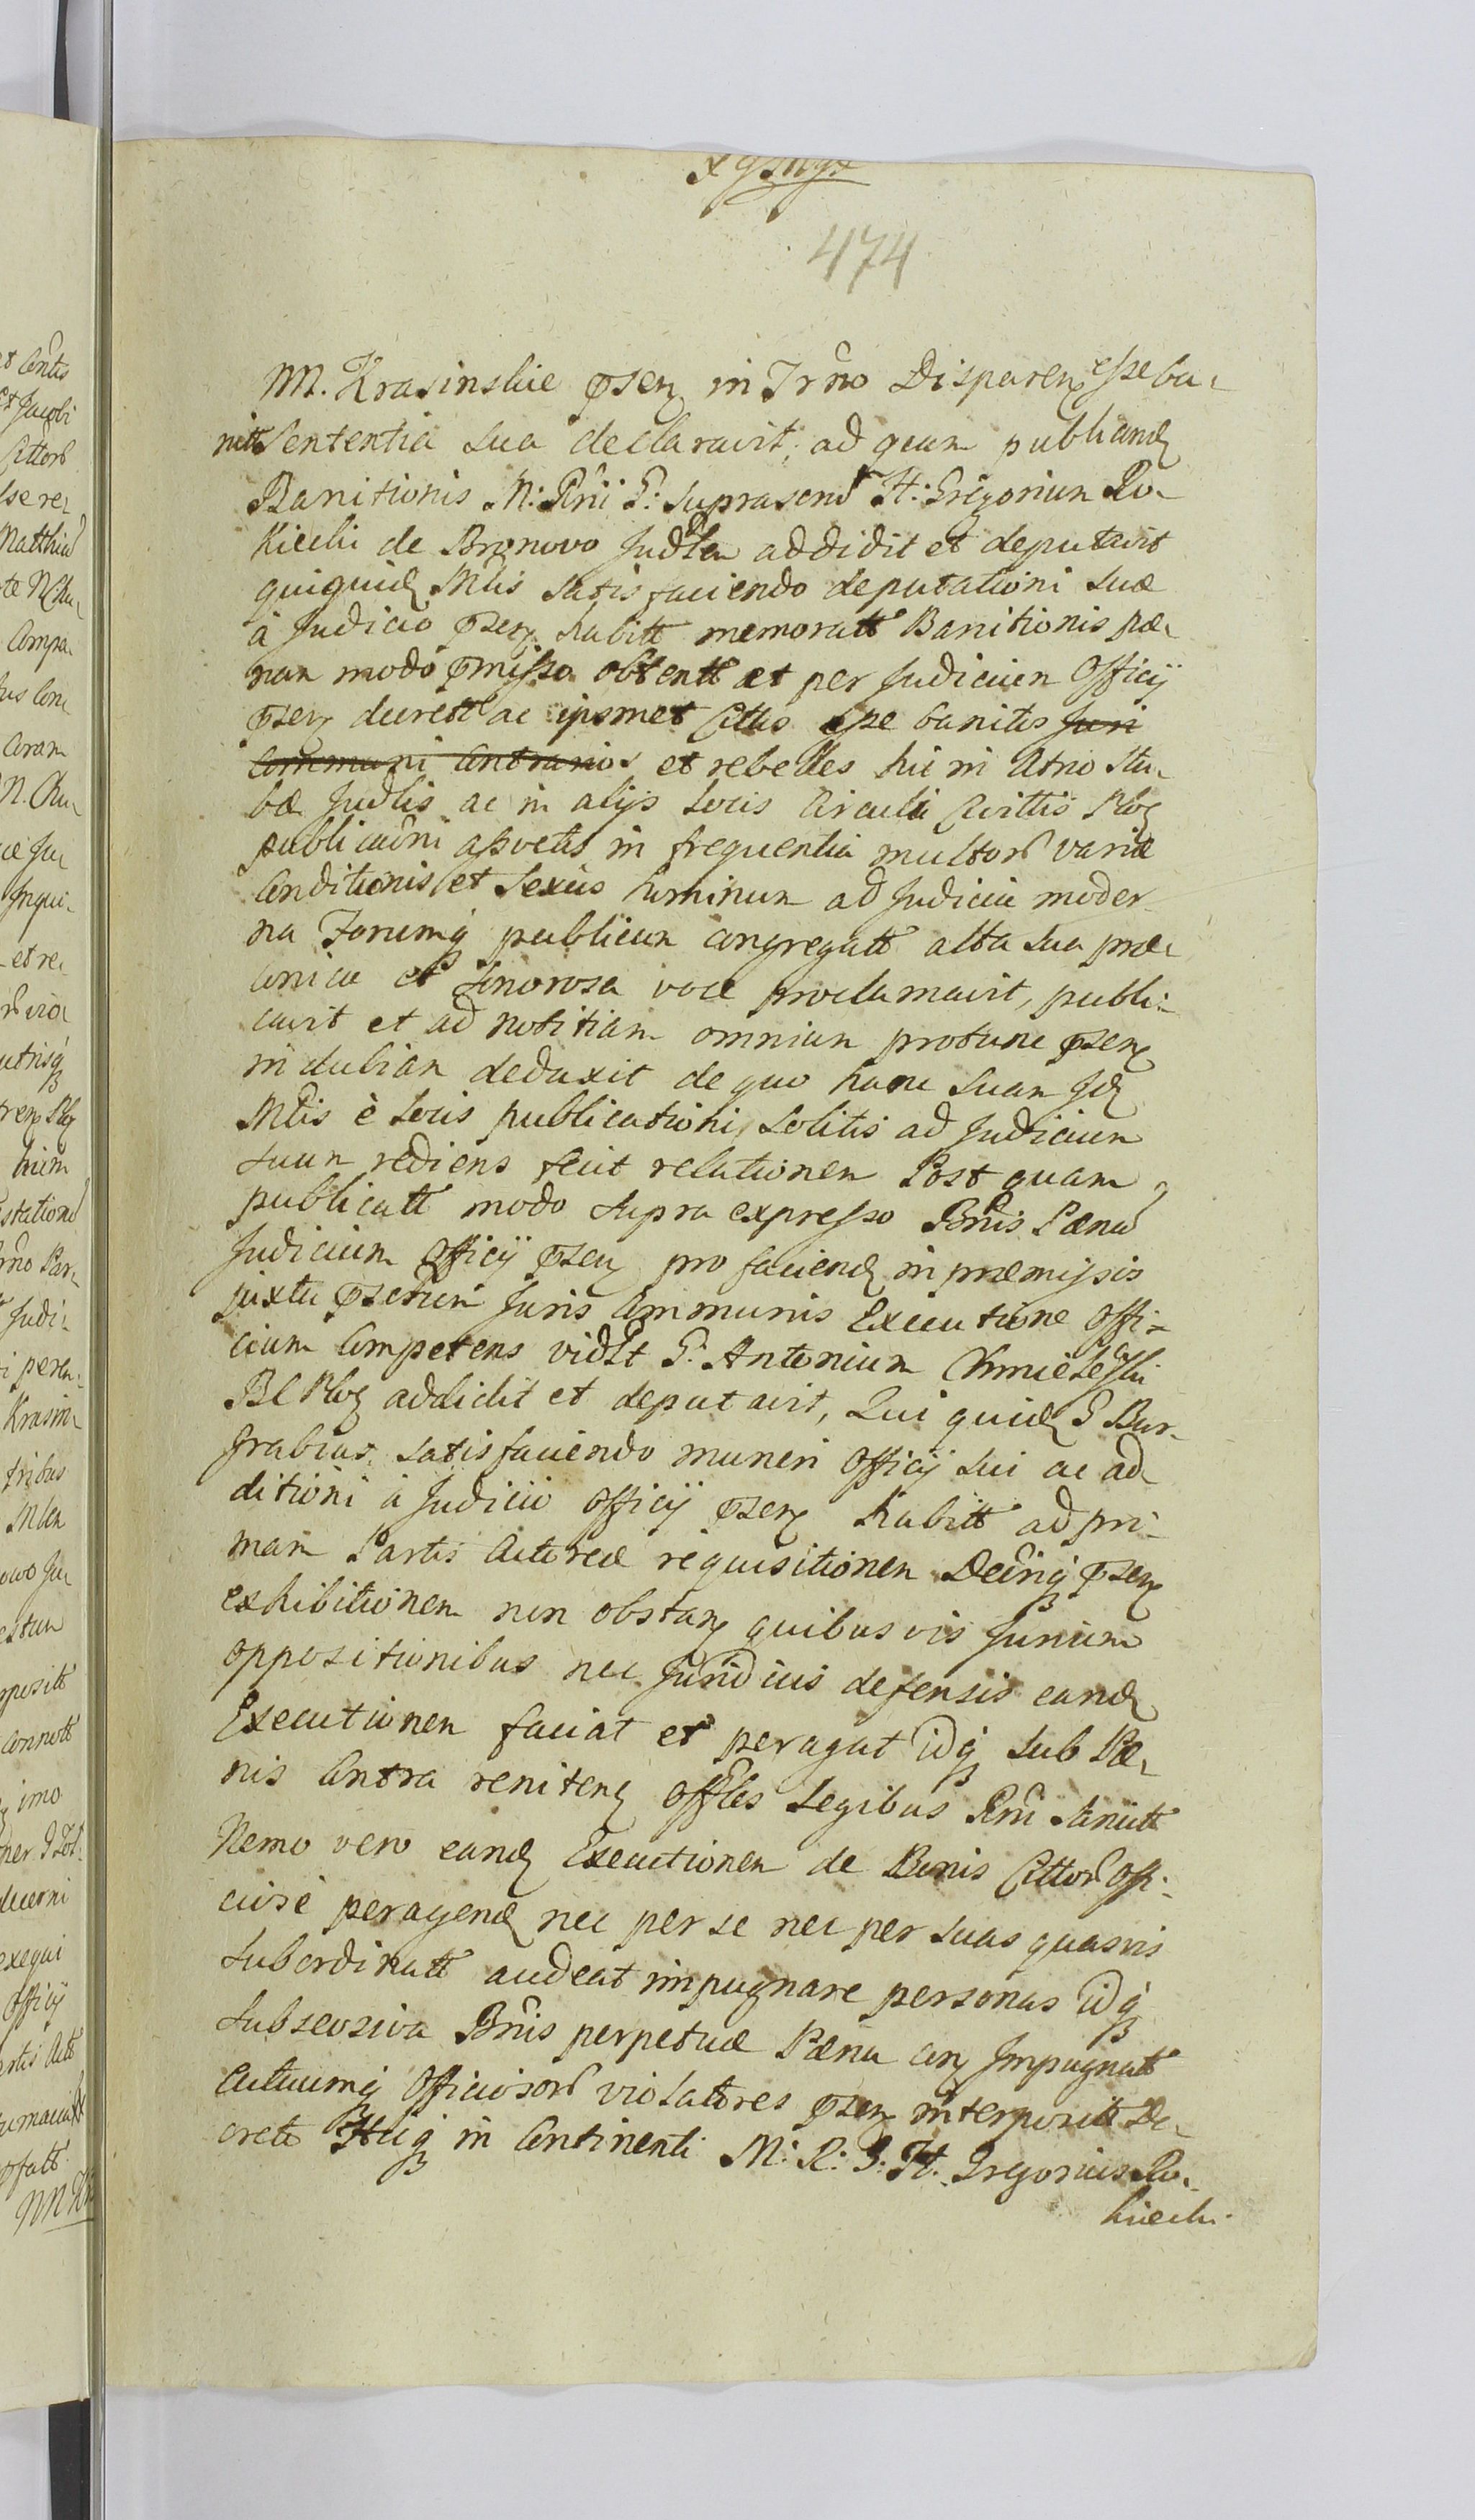 474
M. Krasinskie pnsen in Trno Disparen esse ba-
nitt Sententia sua declaravit, ad quam publicand
Banitionis M: Rnii G: suprascrit H: Gregorium Ro-
kicki de Bronovo Judlem addidit et deputavit
quiquid Mlis satisfaciendo deputationi suæ
à Judicio pnsen habitt memoratt Banitionis pæ-
nam modo pmisso obtentt et per Judicium Officij
pnsen decrett ac ipsmet Cttus esse banitos Juri
communi Contrarios et rebelles hic in Atrio Stu-
bæ Judlis ac in alijs locis Circuli Civittis Ploc
publicaoni assvetis in frequentia multor variæ
Conditionis et Sexus hominum ad Judicia moder-
na Forumq publicum congregatt alta sua præ-
conica et Sonorosa voce proclamavit, publi-
cavit et ad notitiam omnium protunc pnsen
indubiam deduxit de quo hanc suam Jd
Mlis è locis publicationi solitis ad Judicium
suum rediens fecit relationem Post quam
publicatt modo supra expresso Bnis Pænam
Judicium Officij pnsen pro faciend in præmissis
juxta pscrium Juris Communis Executione Offi-
cium Competens vidlt G: Antonium Chmielesski
BC Ploc addidit et deputavit, Qui quid G Bur-
grabius satisfaciendo muneri Officij sui ac ad-
ditioni à Judicio Officij pnsen habitt ad pri-
mam Partis Actoreæ requisitionem Decriq pnsen
exhibitionem non obstan quibusvis Jurium
oppositionibus nec Juridicis defensis eand
Executionem faciat et peragat idq sub Pæ-
nis Contra reniten Offles Legibus Rni Sancitt
Nemo vero eand Executionem de Bonis Cttor Offi-
ciosè peragend nec per se nec per suas quasvis
Subordinatt audeat impugnare personas idq
Subsecsiva Bnis perpetuæ Pæna con Impugnatt
Actuumq Officiosor violatores pnsen interpositt De-
creto Hicq in Continenti M: R: G: H. Gregorius Ro-
kicki